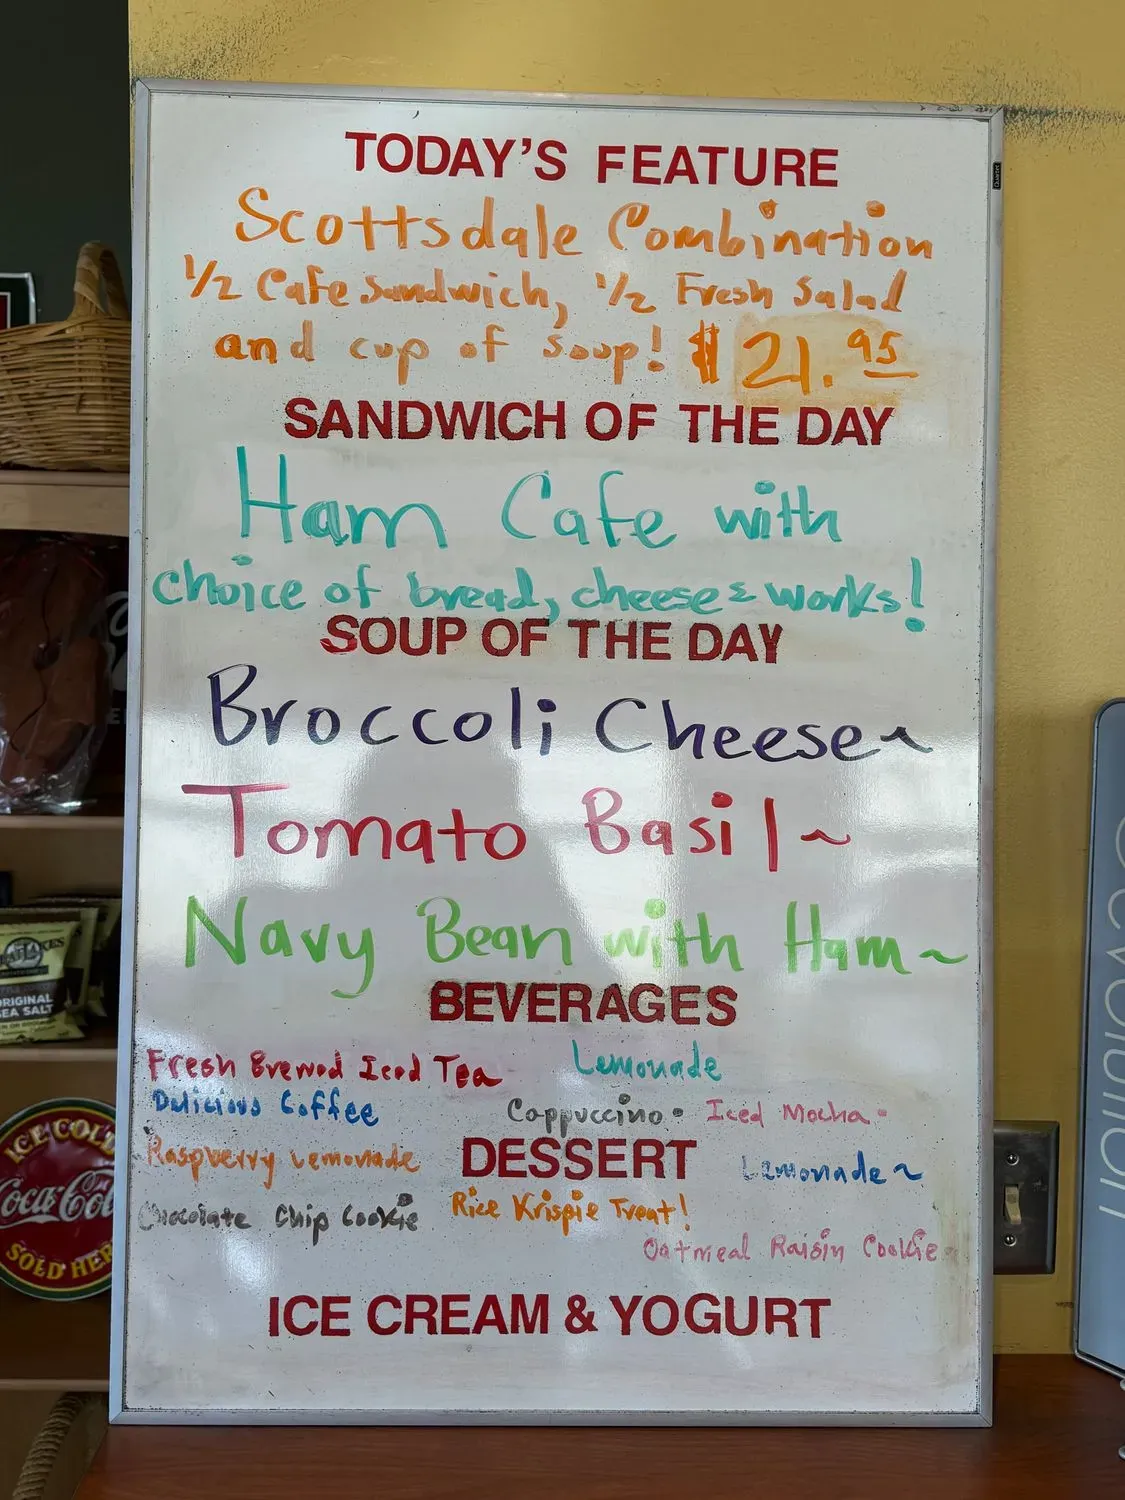 TODAY'S FEATURE
Scottsdale Combination
1/2 Cafe Sandwich, 1/2 Fresh Salad
and cup of soup! $21.95
SANDWICH OF THE DAY
Ham Cafe with
choice of bread, cheese & works!
SOUP OF THE DAY
Broccoli Cheese~
Tomato Basil~
Navy Bean with Ham~
BEVERAGES
Fresh Brewed Iced Tea Lemonade
Delicious Coffee Cappuccino• Iced Mocha•
Raspberry Lemonade DESSERT Lemonade~
Chocolate Chip Cookie Rice Krispie Treat!
Oatmeal Raisin Cookie
ICE CREAM & YOGURT
Quartet
ORIGINAL
SEA SALT
ICE COLD
Coca-Cola
SOLD HERE